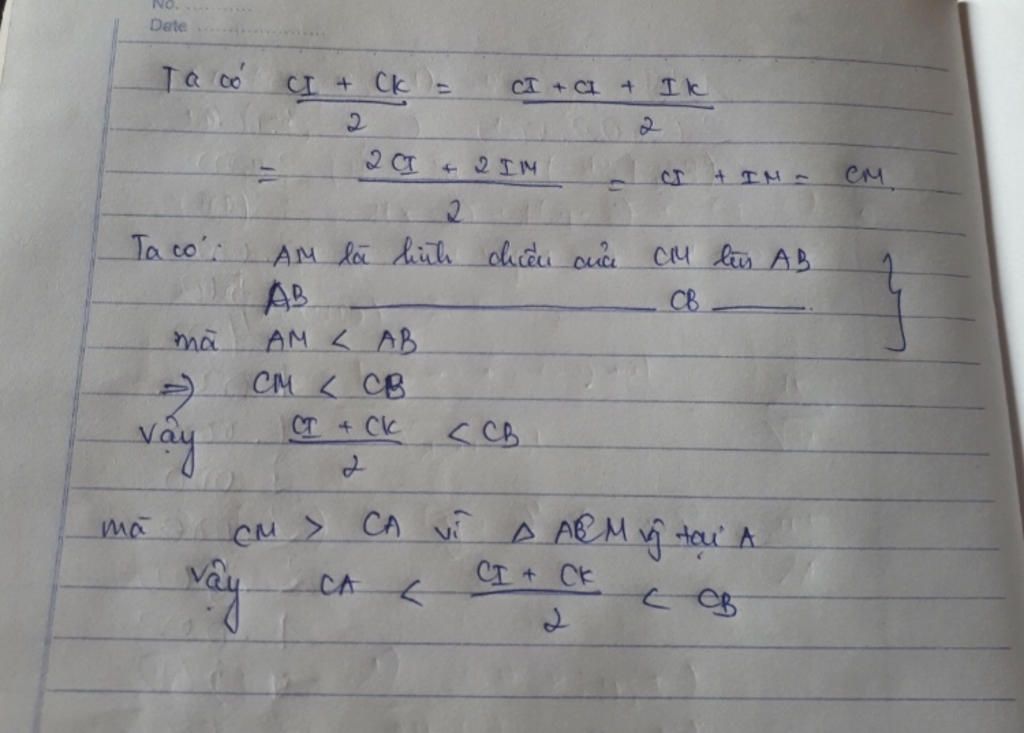 No. ............
Date ........................
Ta có CI + CK / 2 = CI + CI + IK / 2
= 2CI + 2IM / 2 = CI + IM = CM.
Ta có: AM là hình chiếu của CM lên AB
AB ——— CB ———.
mà AM < AB
⇒ CM < CB
Vậy CI + CK / 2 < CB
mà CM > CA vì Δ ACM vg tại A
Vậy CA < CI + CK / 2 < CB